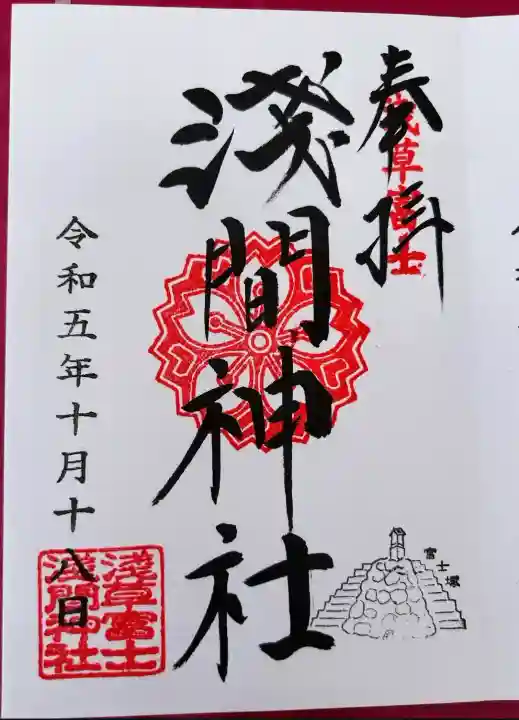 奉拝
浅草富士
淺間神社
富士塚
令和五年十月十八日
淺草富士
淺間神社